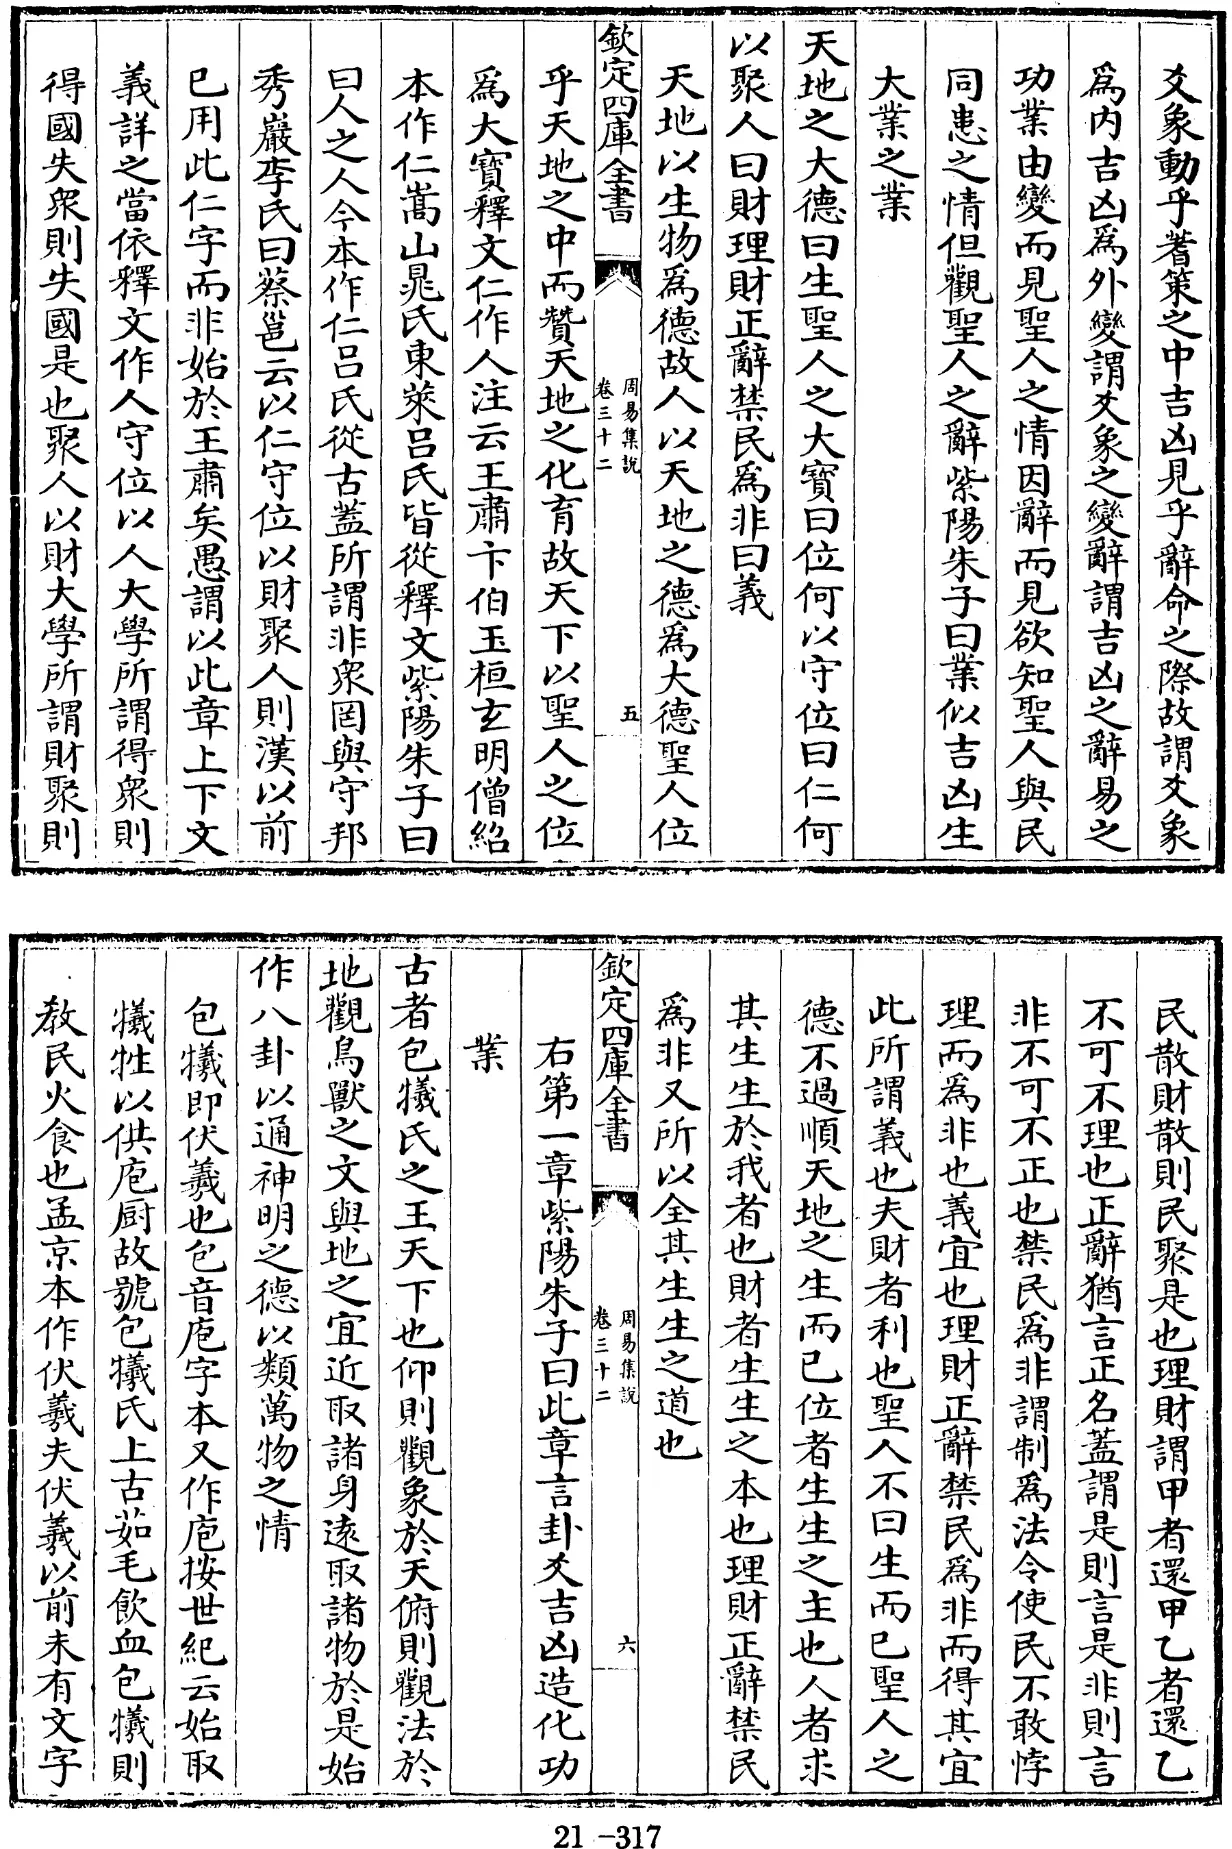 爻象動乎蓍策之中吉凶見乎辭命之際故謂爻象
爲内吉凶爲外變謂爻象之變辭謂吉凶之辭易之
功業由變而見聖人之情因辭而見欲知聖人與民
同患之情但觀聖人之辭紫陽朱子曰業似吉凶生
大業之業
天地之大德曰生聖人之大寶曰位何以守位曰仁何
以聚人曰財理財正辭禁民爲非曰義
天地以生物爲德故人以天地之德爲大德聖人位
欽定四庫全書
周易集說
卷三十二
五
乎天地之中而贊天地之化育故天下以聖人之位
爲大寶釋文仁作人注云王肅卞伯玉桓玄明僧紹
本作仁嵩山晁氏東萊吕氏皆從釋文紫陽朱子曰
曰人之人今本作仁吕氏從古蓋所謂非衆罔與守邦
秀巖李氏曰蔡邕云以仁守位以財聚人則漢以前
已用此仁字而非始於王肅矣愚謂以此章上下文
義詳之當依釋文作人守位以人大學所謂得衆則
得國失衆則失國是也聚人以財大學所謂財聚則
民散財散則民聚是也理財謂甲者還甲乙者還乙
不可不理也正辭猶言正名蓋謂是則言是非則言
非不可不正也禁民爲非謂制爲法令使民不敢悖
理而爲非也義宜也理財正辭禁民爲非而得其宜
此所謂義也夫財者利也聖人不曰生而已聖人之
德不過順天地之生而已位者生生之主也人者求
其生生於我者也財者生生之本也理財正辭禁民
爲非又所以全其生生之道也
欽定四庫全書
周易集說
卷三十二
六
右第一章紫陽朱子曰此章言卦爻吉凶造化功
業
古者包犧氏之王天下也仰則觀象於天俯則觀法於
地觀鳥獸之文與地之宜近取諸身遠取諸物於是始
作八卦以通神明之德以類萬物之情
包犧即伏羲也包音庖字本又作庖按世紀云始取
犧牲以供庖厨故號包犧氏上古茹毛飲血包犧則
教民火食也孟京本作伏羲夫伏羲以前未有文字
21-317